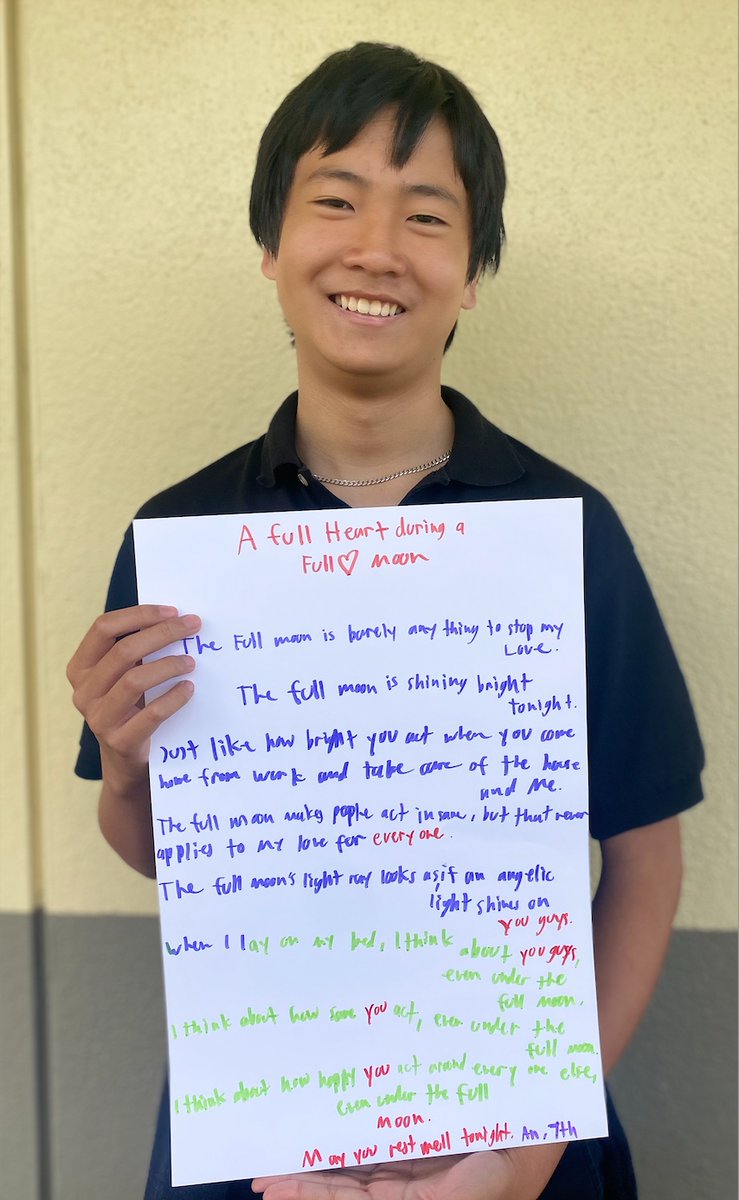 A full Heart during a
Full♡ moon
The Full moon is barely any thing to stop my
Love.
The full moon is shining bright
tonight.
Just like how bright you act when you come
home from work and take care of the house
and Me.
The full moon makes people act insane, but that never
applies to my love for everyone.
The full moon's light ray looks as if an angelic
light shines on
you guys.
When I lay on my bed, I think about you guys,
even under the
full moon.
I think about how sane you act, even under the
full moon.
I think about how happy you act around every one else,
even under the full
moon.
May you rest well tonight. An, 7th